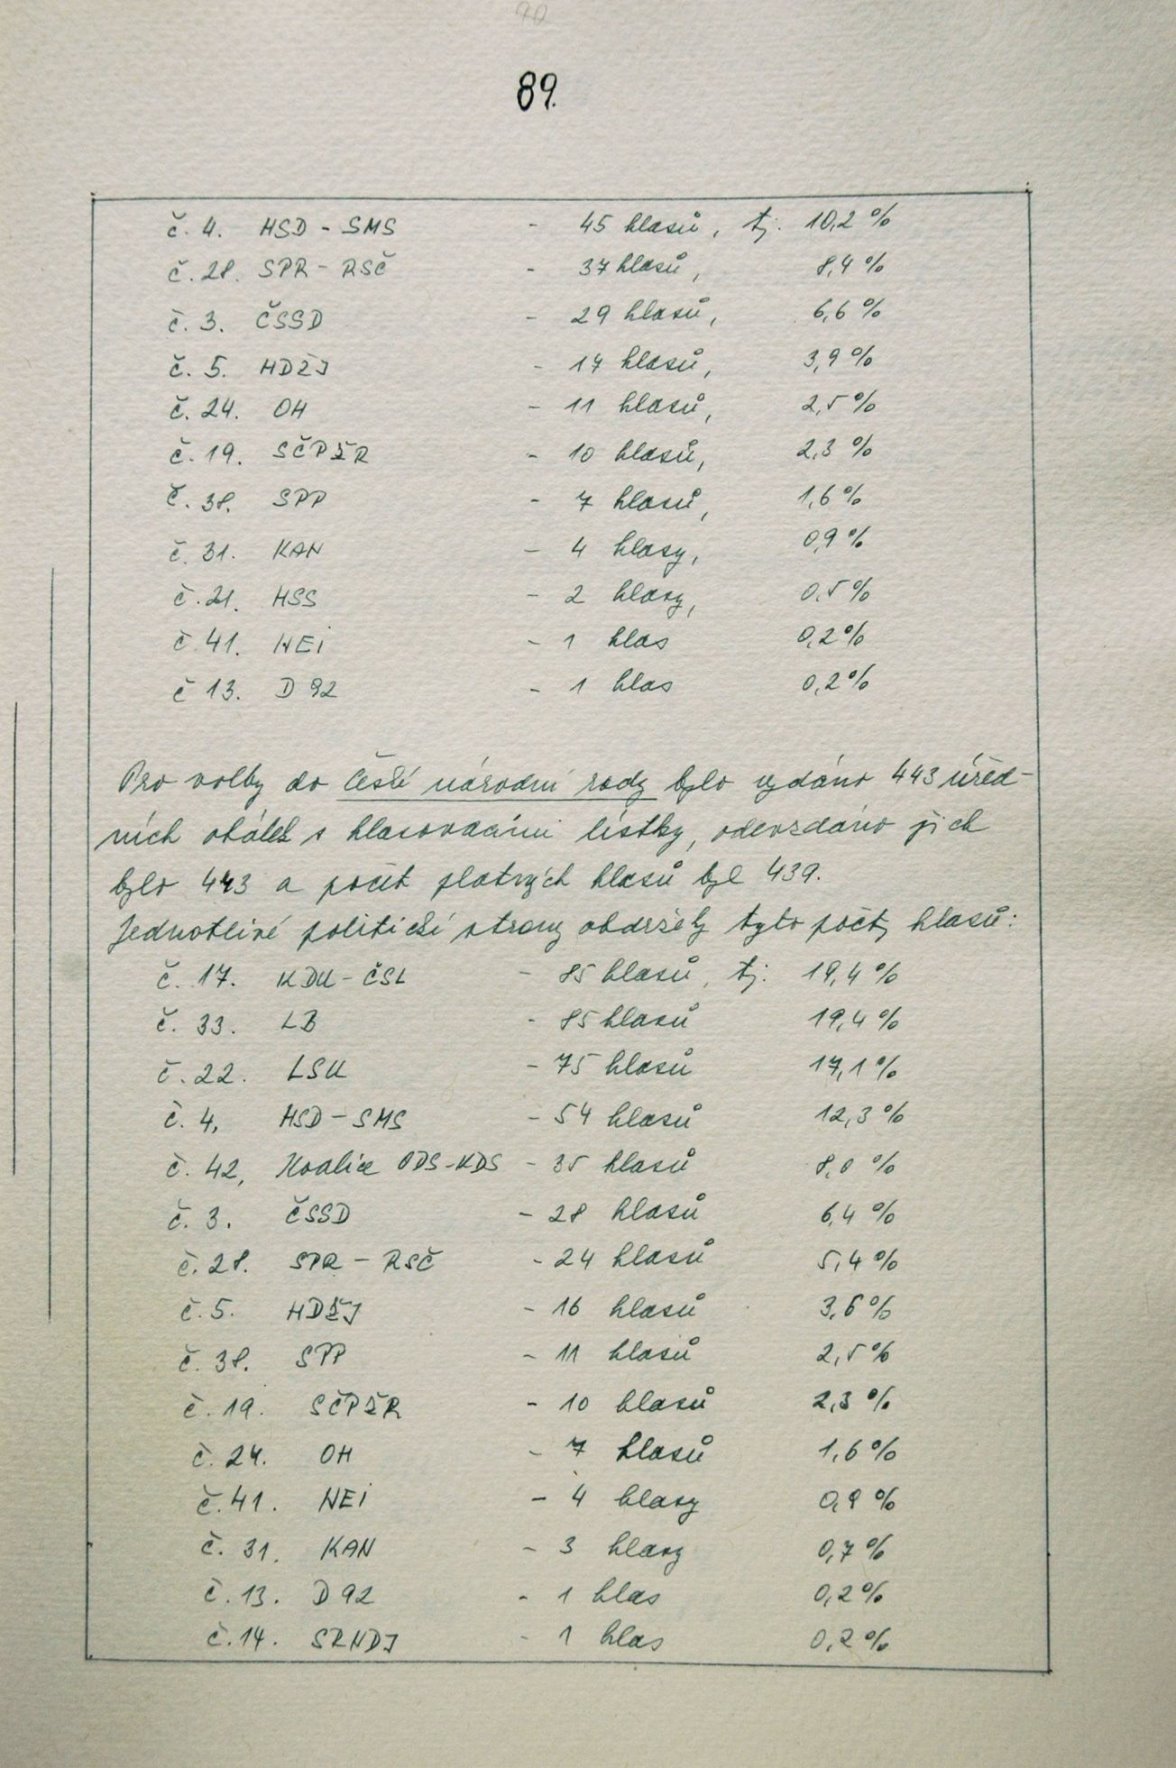 90
89.
č. 4. HSD - SMS - 45 hlasů, tj. 10,2 %
č. 28. SPR - RSČ - 37 hlasů, 8,4 %
č. 3. ČSSD - 29 hlasů, 6,6 %
č. 5. HDŽJ - 17 hlasů, 3,9 %
č. 24. OH - 11 hlasů, 2,5 %
č. 19. SČPŽR - 10 hlasů, 2,3 %
č. 38. SPP - 7 hlasů, 1,6 %
č. 31. KAN - 4 hlasy, 0,9 %
č. 21. HSS - 2 hlasy, 0,5 %
č 41. NEI - 1 hlas 0,2 %
č 13. D 92 - 1 hlas 0,2 %
Pro volby do České národní rady bylo vydáno 443 úřed-
ních obálek s hlasovacími lístky, odevzdáno jich
bylo 443 a počet platných hlasů byl 439.
Jednotlivé politické strany obdržely tyto počty hlasů:
č. 17. KDU - ČSL - 85 hlasů, tj. 19,4 %
č. 33. LB - 85 hlasů 19,4 %
č. 22. LSU - 75 hlasů 17,1 %
č. 4, HSD - SMS - 54 hlasů 12,3 %
č. 42, Koalice ODS-KDS - 35 hlasů 8,0 %
č. 3. ČSSD - 28 hlasů 6,4 %
č. 28. SPR - RSČ - 24 hlasů 5,4 %
č. 5. HDŽJ - 16 hlasů 3,6 %
č. 38. SPP - 11 hlasů 2,5 %
č. 19. SČPŽR - 10 hlasů 2,3 %
č. 24. OH - 7 hlasů 1,6 %
č. 41. NEI - 4 hlasy 0,9 %
č. 31. KAN - 3 hlasy 0,7 %
č. 13. D 92 - 1 hlas 0,2 %
č. 14. SRNDJ - 1 hlas 0,2 %